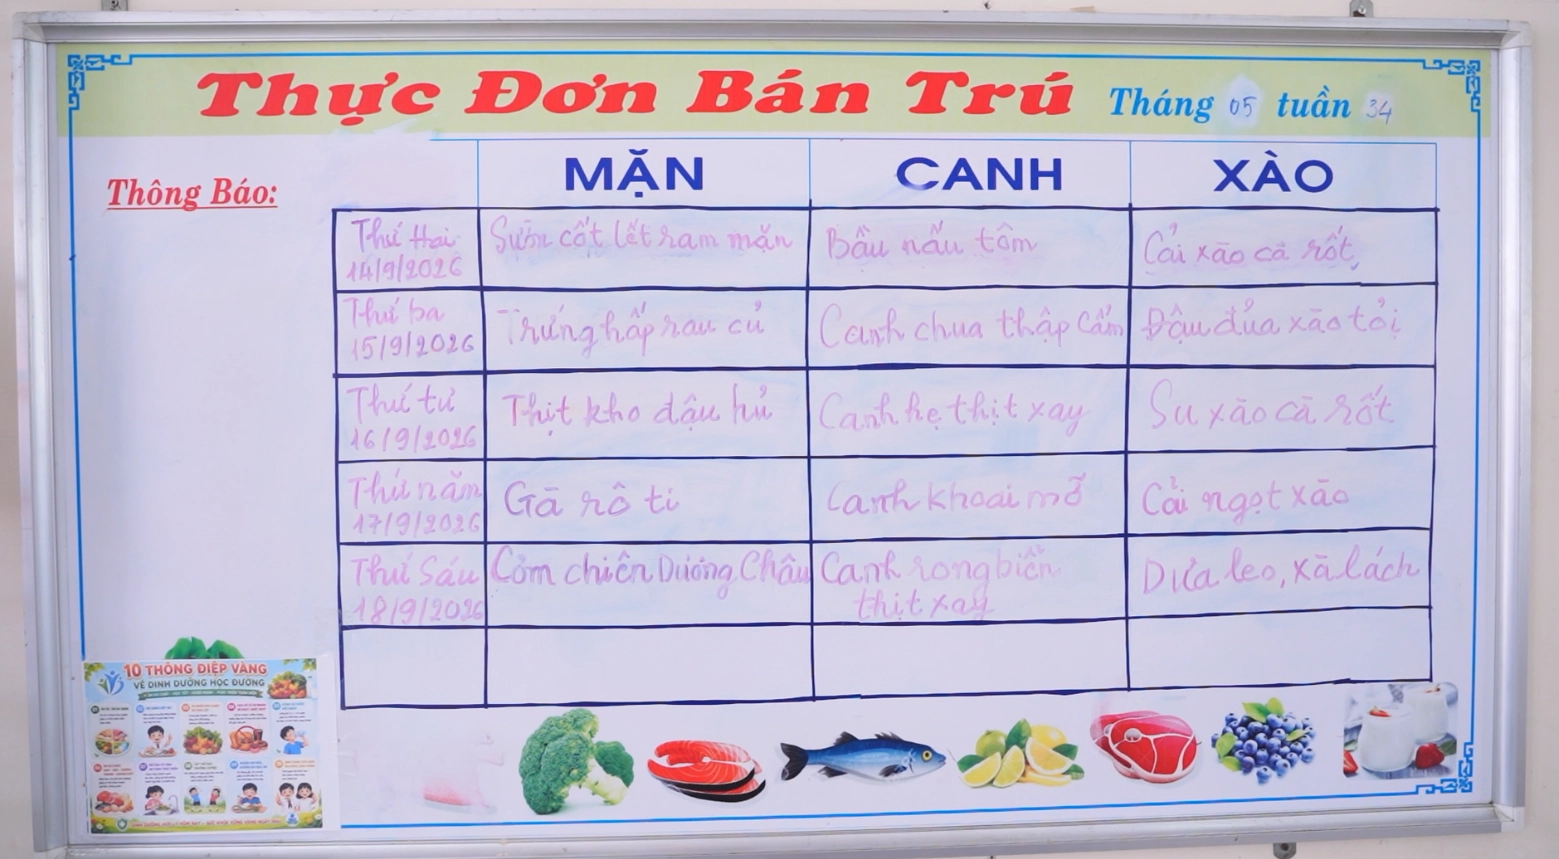 Thực Đơn Bán Trú Tháng 05 tuần 34
Thông Báo:
MẶN CANH XÀO
Thứ Hai Sườn cốt lết ram mặn Bầu nấu tôm Cải xào cà rốt
14/9/2026
Thứ ba Trứng hấp rau củ Canh chua thập cẩm Đậu đũa xào tỏi
15/9/2026
Thứ tư Thịt kho đậu hủ Canh hẹ thịt xay Su xào cà rốt
16/9/2026
Thứ năm Gà rô ti Canh khoai mỡ Cải ngọt xào
17/9/2026
Thứ Sáu Cơm chiên Dương Châu Canh rong biển Dưa leo, xà lách
18/9/2026 thịt xay
10 THÔNG ĐIỆP VÀNG
VỀ DINH DƯỠNG HỌC ĐƯỜNG